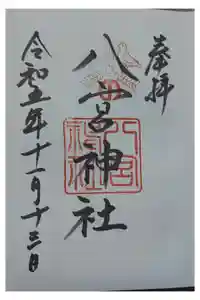 奉拝
八宮神社
令和五年十一月十三日